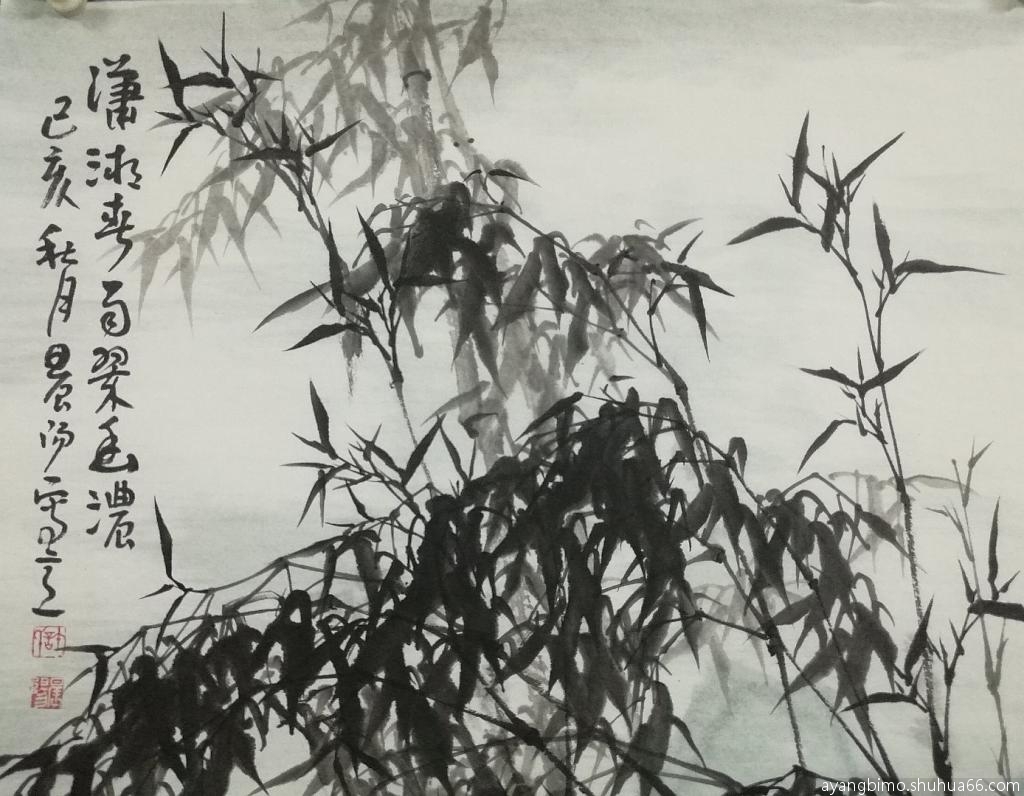 瀟湘春雨翠色濃
己亥秋月晨阳写之
ayangbimo.shuhua66.com